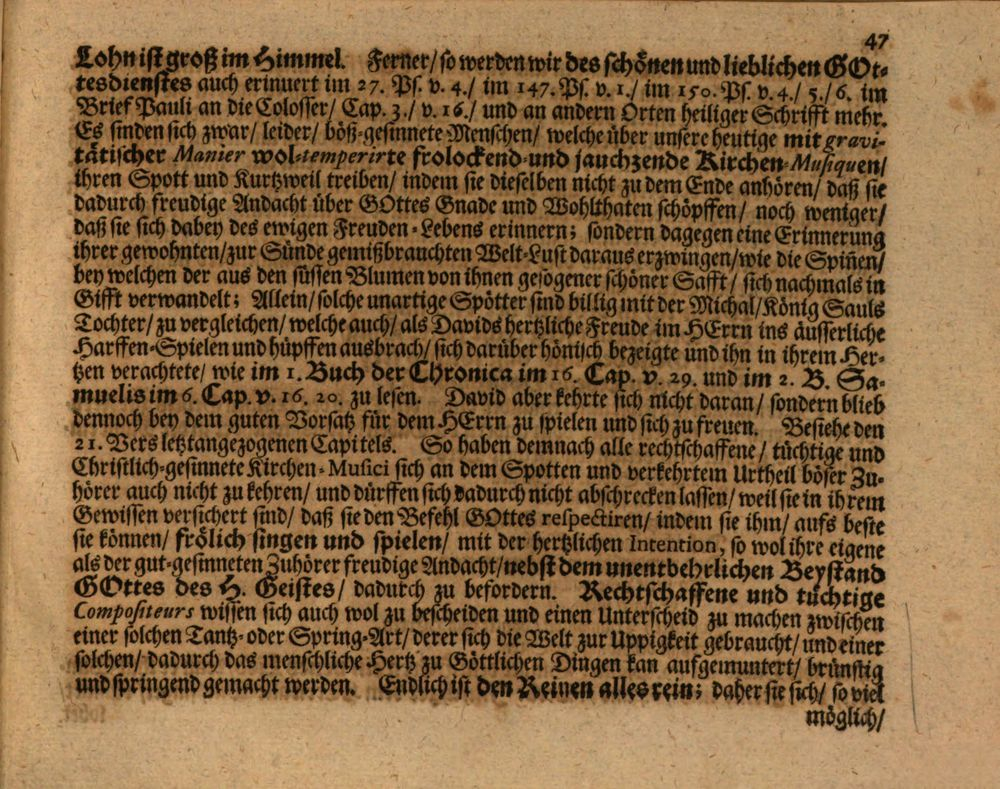 47
Lohn ist groß im Himmel. Ferner/ so werden wir des schönen und lieblichen GOt-
tesdienstes auch erinuert im 27. Ps. v. 4./ im 147. Ps. v. 1./ im 150. Ps. v. 4./ 5./ 6. im
Brief Pauli an die Colosser/ Cap. 3./ v. 16./ und an andern Orten heiliger Schrifft mehr.
Es finden sich zwar/ leider/ böß-gesinnete Menschen/ welche über unsere heutige mit gravi-
tätischer Manier wol-temperirte frolockend- und jauchzende Kirchen-Musiquen/
ihren Spott und Kurtzweil treiben/ indem sie dieselben nicht zu dem Ende anhören/ daß sie
dadurch freudige Andacht über GOttes Gnade und Wohlthaten schöpffen/ noch weniger/
daß sie sich dabey des ewigen Freuden-Lebens erinnern; sondern dagegen eine Erinnerung
ihrer gewohnten/ zur Sünde gemißbrauchten Welt-Lust daraus erzwingen/ wie die Spiñen/
bey welchen der aus den süssen Blumen von ihnen gesogener schöner Safft/ sich nachmals in
Gifft verwandelt; Allein/ solche unartige Spötter sind billig mit der Michal/ König Sauls
Tochter/ zu vergleichen/ welche auch/ als Davids hertzliche Freude im HErrn ins äusserliche
Harffen-Spielen und hüpffen ausbrach/ sich darüber hönisch bezeigte und ihn in ihrem Her-
tzen verachtete/ wie im 1. Buch der Chronica im 16. Cap. v. 29. und im 2. B. Sa-
muelis im 6. Cap. v. 16. 20. zu lesen. David aber kehrte sich nicht daran/ sondern blieb
dennoch bey dem guten Vorsatz für dem HErrn zu spielen und sich zu freuen. Besiehe den
21. Vers letztangezogenen Capitels. So haben demnach alle rechtschaffene/ tüchtige und
Christlich-gesinnete Kirchen-Musici sich an dem Spotten und verkehrtem Urtheil böser Zu-
hörer auch nicht zu kehren/ und dürffen sich dadurch nicht abschrecken lassen/ weil sie in ihrem
Gewissen versichert sind/ daß sie den Befehl GOttes respectiren/ indem sie ihm/ aufs beste
sie können/ frölich singen und spielen/ mit der hertzlichen Intention, so wol ihre eigene
als der gut-gesinneten Zuhörer freudige Andacht/ nebst dem unentbehrlichen Beystand
GOttes des H. Geistes/ dadurch zu befordern. Rechtschaffene und tüchtige
Compositeurs wissen sich auch wol zu bescheiden und einen Unterscheid zu machen zwischen
einer solchen Tantz- oder Spring-Art/ derer sich die Welt zur Uppigkeit gebraucht/ und einer
solchen/ dadurch das menschliche Hertz zu Göttlichen Dingen kan aufgemuntert/ brünstig
und springend gemacht werden. Endlich ist den Reinen alles rein; daher sie sich/ so viel
möglich/